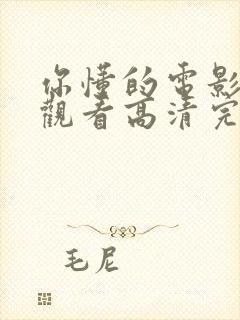 你懂的电影
觀看高清完
毛尼